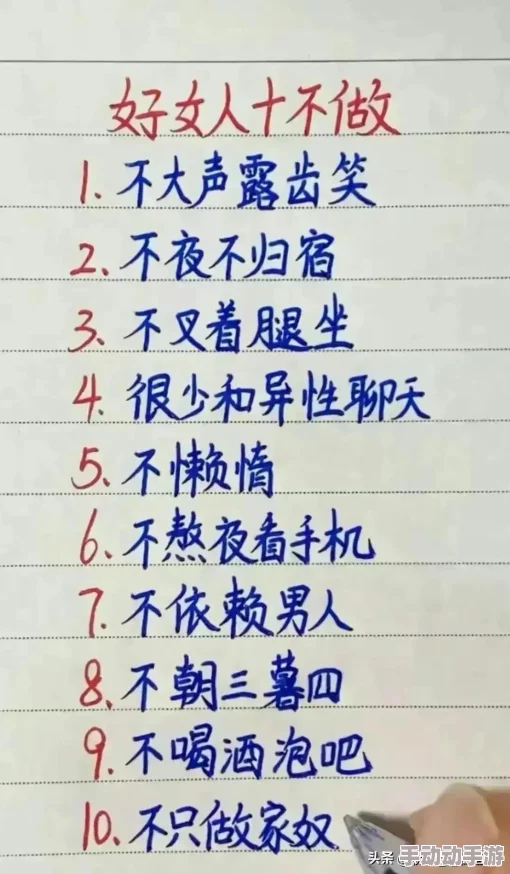 好女人十不做
1. 不大声露齿笑
2. 不夜不归宿
3. 不叉着腿坐
4. 很少和异性聊天
5. 不懒惰
6. 不熬夜看手机
7. 不依赖男人
8. 不朝三暮四
9. 不喝酒泡吧
10. 不只做家奴
头条
手动动手游